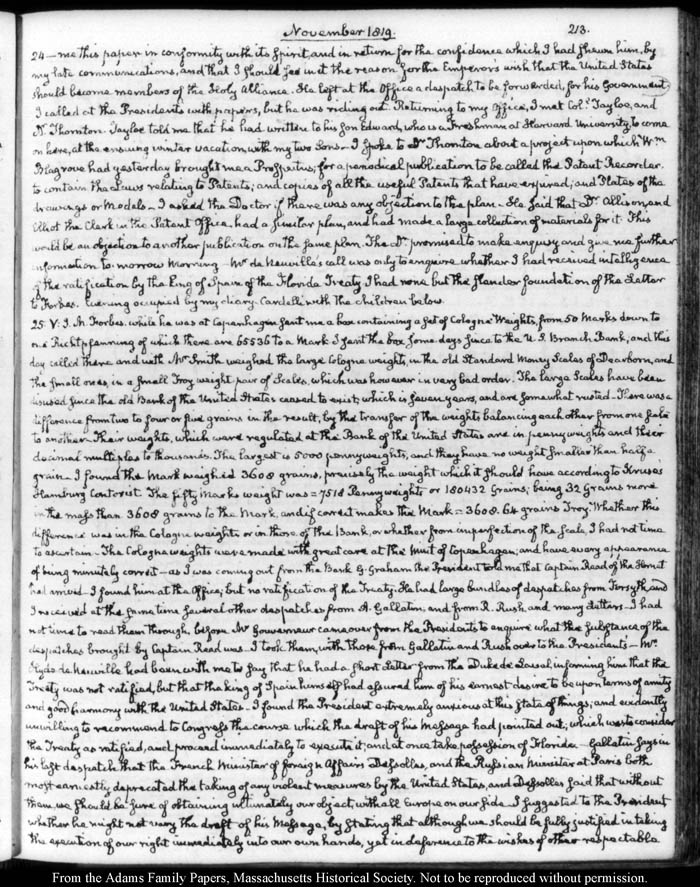 November 1819. 213.
24 — me this paper in conformity with its Spirit, and in return for the confidence which I had shewn him, by
my late communications, and that I should see in it the reason for the Emperor's wish that the United States
should become members of the Holy Alliance. He left at the Office a despatch to be forwarded, for his Government
I called at the Presidents with papers, but he was riding out. Returning to my Office, I met Col. Tayloe, and
Dr. Thornton. Tayloe told me that he had written to his Son Edward, who is a Freshman at Harvard University to come
on here, at the ensuing winter vacation, with my two Sons — I spoke to Dr. Thornton about a project upon which Wm
Blagrove had yesterday brought me a Prospectus; for a periodical publication to be called the Patent Recorder.
to contain the Laws relating to Patents; and copies of all the useful Patents that have expired; and Plates of the
drawings or Models — I asked the Doctor if there was any objection to the plan — He said that Dr. Allison, and
Elliot the Clerk in the Patent Office, had a similar plan, and had made a large collection of materials for it. This
would be an objection to another publication on the same plan. The Dr. promised to make enquiry and give me further
information to-morrow Morning — Mr. de Neuville's call was only to enquire whether I had received intelligence
of the ratification by the King of Spain of the Florida Treaty. I had none, but the slender foundation of the Letter
to Forbes. Evening occupied by my diary. Cardelli with the children below.
25. V. J. M. Forbes, while he was at Copenhagen sent me a box containing a set of Cologne Weights, from 50 Marks down to
one Richtpfenning of which there are 65536 to a Mark. I sent the box some days since to the U.S. Branch Bank, and this
day called there and with Mr. Smith weighed the large Cologne weights, in the old Standard Money Scales of Dearborn, and
the small ones, in a small Troy weight pair of Scales, which was however in very bad order. The large Scales have been
disused since the old Bank of the United States ceased to exist, which is seven years, and are somewhat rusted — There was a
difference from two to four or five grains in the result, by the transfer of the weights balancing each other from one scale
to another — Their weights, which were regulated at the Bank of the United States are in pennyweights and their
decimal multiples to thousands. The largest is 5000 pennyweights, and they have no weight smaller than half a
grain — I found the Mark weighed 3608 grains, precisely the weight which it should have according to Kruse's
Hamburg Contorist. The fifty Marks weight was = 7518 Pennyweights or 180432 Grains; being 32 Grains more
in the mass than 3608 grains to the Mark, and if correct makes the Mark = 3608.64 grains Troy. Whether this
difference was in the Cologne weights or in those of the Bank, or whether from imperfection of the Scale, I had not time
to ascertain — The Cologne weights were made with great care at the Mint of Copenhagen, and have every appearance
of being minutely correct — as I was coming out from the Bank G. Graham the President told me that Captain Read of the Hornet
had arrived — I found him at the Office; but no ratification of the Treaty. He had large bundles of despatches from Forsyth, and
I received at the same time several other despatches from A. Gallatin, and from R. Rush, and many letters — I had
not time to read them through, before Mr. Gouverneur came over from the Presidents to enquire what the substance of the
despatches brought by Captain Read was. I took them, with those from Gallatin and Rush over to the Presidents — Mr.
Hyde de Neuville had been with me to say that he had a short Letter from the Duke de Laval, informing him that the
Treaty was not ratified, but that the king of Spain himself had assured him of his earnest desire to be upon terms of amity
and good harmony with the United States — I found the President extremely anxious at this state of things; and evidently
unwilling to recommend to Congress the course which the draft of his Message had pointed out; which was to consider
the Treaty as ratified, and proceed immediately to execute it; and at once take possession of Florida — Gallatin says in
his last despatch that the French Minister of foreign Affairs Dessolles, and the Russian minister at Paris both
most earnestly deprecated the taking of any violent measures by the United States, and Dessolles said that without
them we should be sure of obtaining ultimately our object, with all Europe on our side. I suggested to the President
whether he might not vary the draft of his Message, by stating that although we should be fully justified in taking
the execution of our right immediately into our own hands, yet in deference to the wishes of other respectable
From the Adams Family Papers, Massachusetts Historical Society. Not to be reproduced without permission.